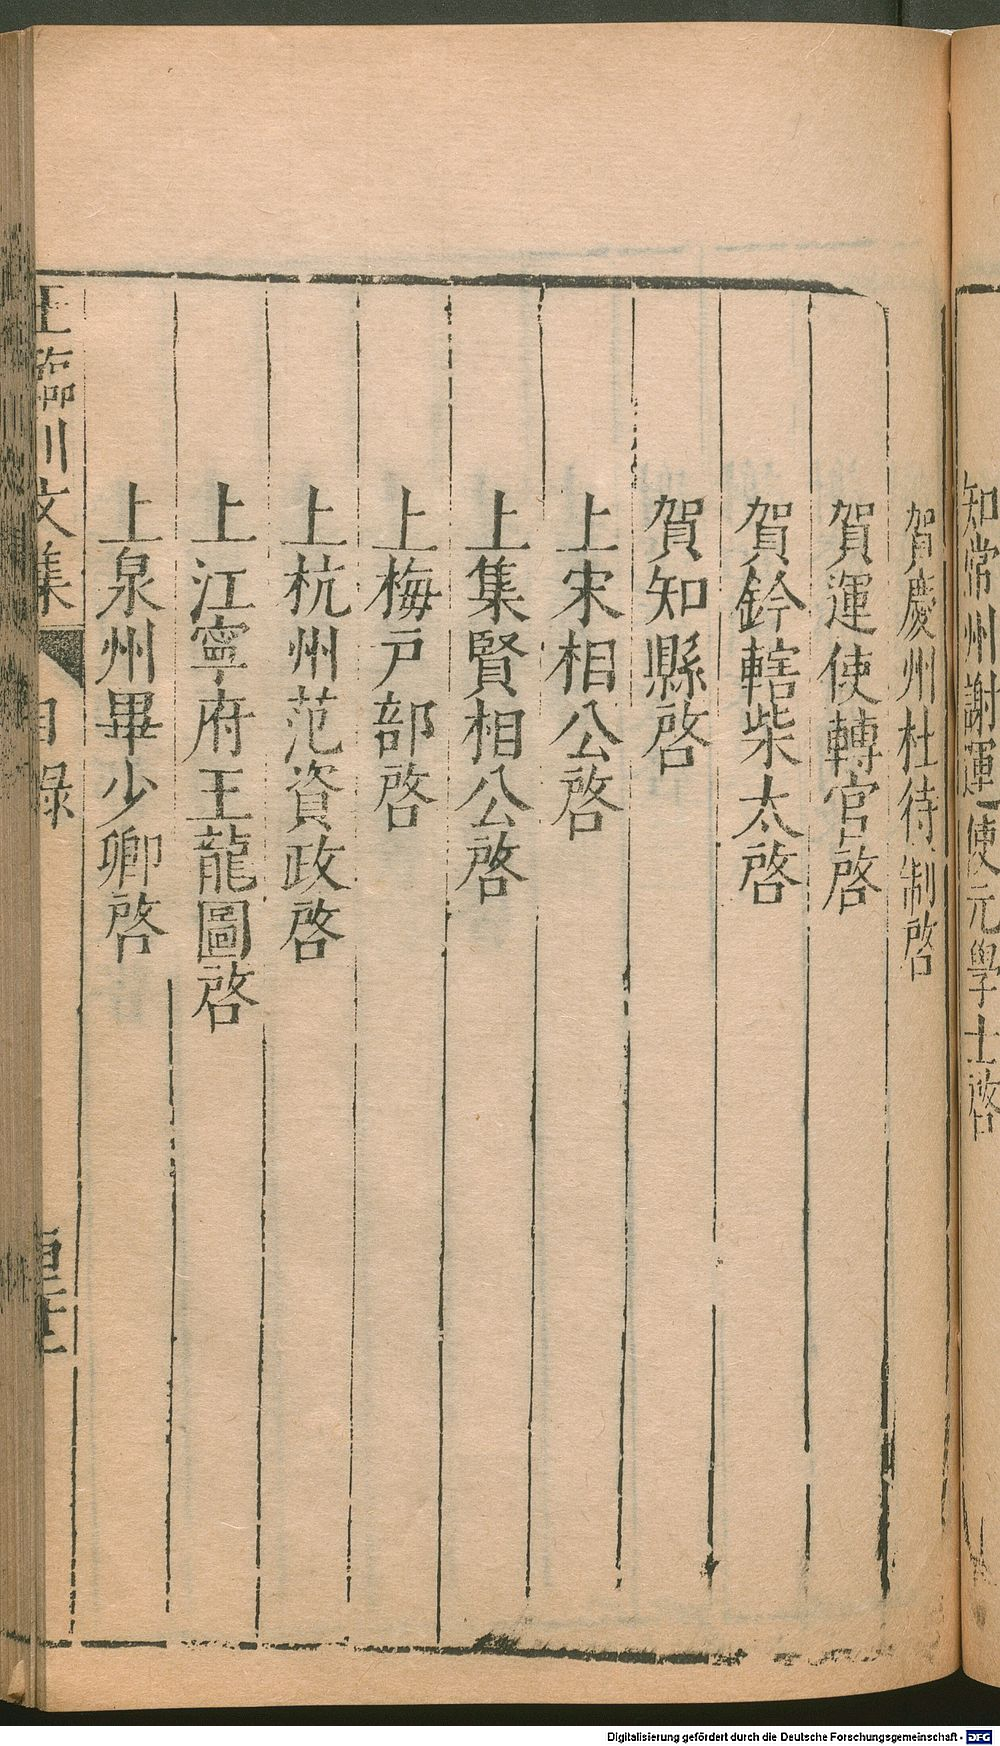 知常州謝運使元學士啓
賀慶州杜待制啓
賀運使轉官啓
賀鈐轄柴太啓
賀知縣啓
上宋相公啓
上集賢相公啓
上梅戶部啓
上杭州范資政啓
上江寧府王龍圖啓
上泉州畢少卿啓
王臨川文集 目錄
Digitalisierung gefördert durch die Deutsche Forschungsgemeinschaft - DFG